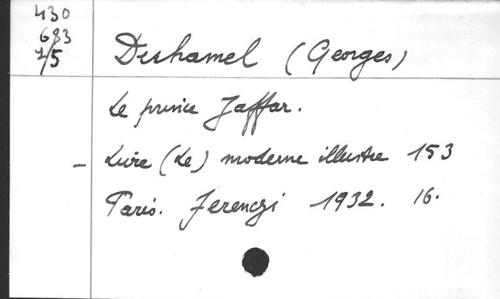 430
683
1/5
Duhamel (Georges)
Le prince Jaffar.
- Livre (Le) moderne illustre 153
Paris. Ferenczi 1932. 16.